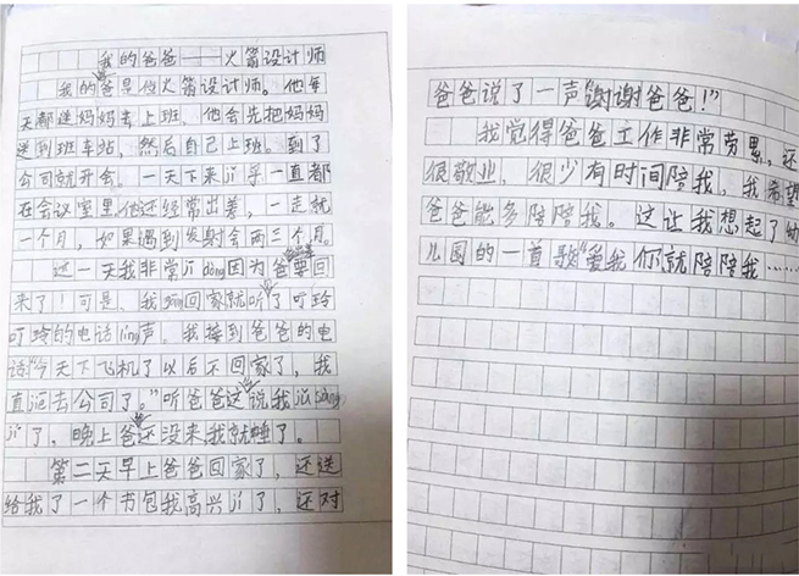 我的爸爸——火箭设计师
我的爸是位火箭设计师。他每
天都送妈妈去上班,他会先把妈妈
送到班车站,然后自己上班。到了
公司就开会。一天下来jī乎一直都
在会议室里,他还经常出差,一走就
一个月,如果遇到发射会两三个月。
这一天我非常jī dòng因为爸要回
来了!可是,我gāng回家就听了叮玲
叮玲的电话líng声。我接到爸爸的电
话“今天下飞机了以后不回家了,我
直jiē去公司了。”听爸爸这说我jǔ sàng
jí了,晚上爸还没来,我就睡了。
第二天早上爸爸回家了,还送
给我了一个书包我高兴jí了,还对
爸爸说了一声“谢谢爸爸!”
我觉得爸爸工作非常劳累,还
很敬业,很少有时间陪我,我希望
爸爸能多陪陪我。这让我想起了幼
儿园的一首歌“爱我你就陪陪我……